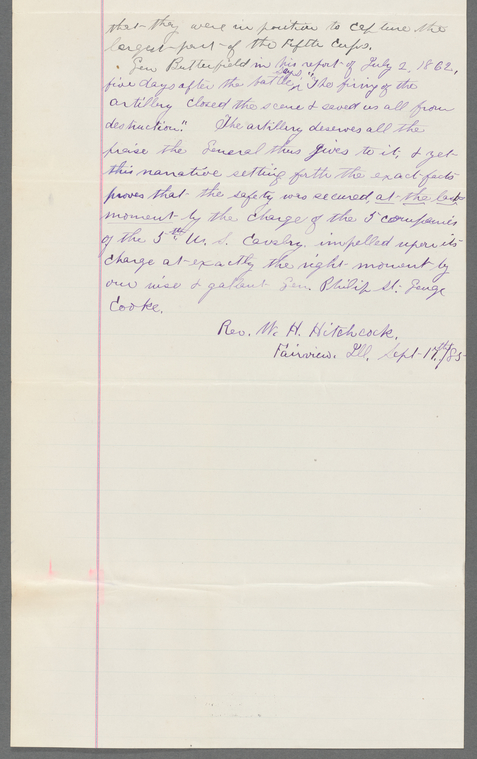 that they were in position to capture the
largest part of the Fifth Corps.
Gen Butterfield in his report of July 2, 1862,
five days after the battle, says, "The firing of the
artillery closed the scene & saved us all from
destruction." The artillery deserves all the
praise the General thus gives to it, & yet
this narrative setting forth the exact facts
proves that the safety was secured at the last
moment by the charge of the 5 companies
of the 5th U. S. Cavalry impelled upon its
charge at exactly the right moment by
our wise & gallant Gen. Philip St. George
Cooke.
Rev. W. H. Hitchcock.
Fairview. Ill. Sept 17th/85